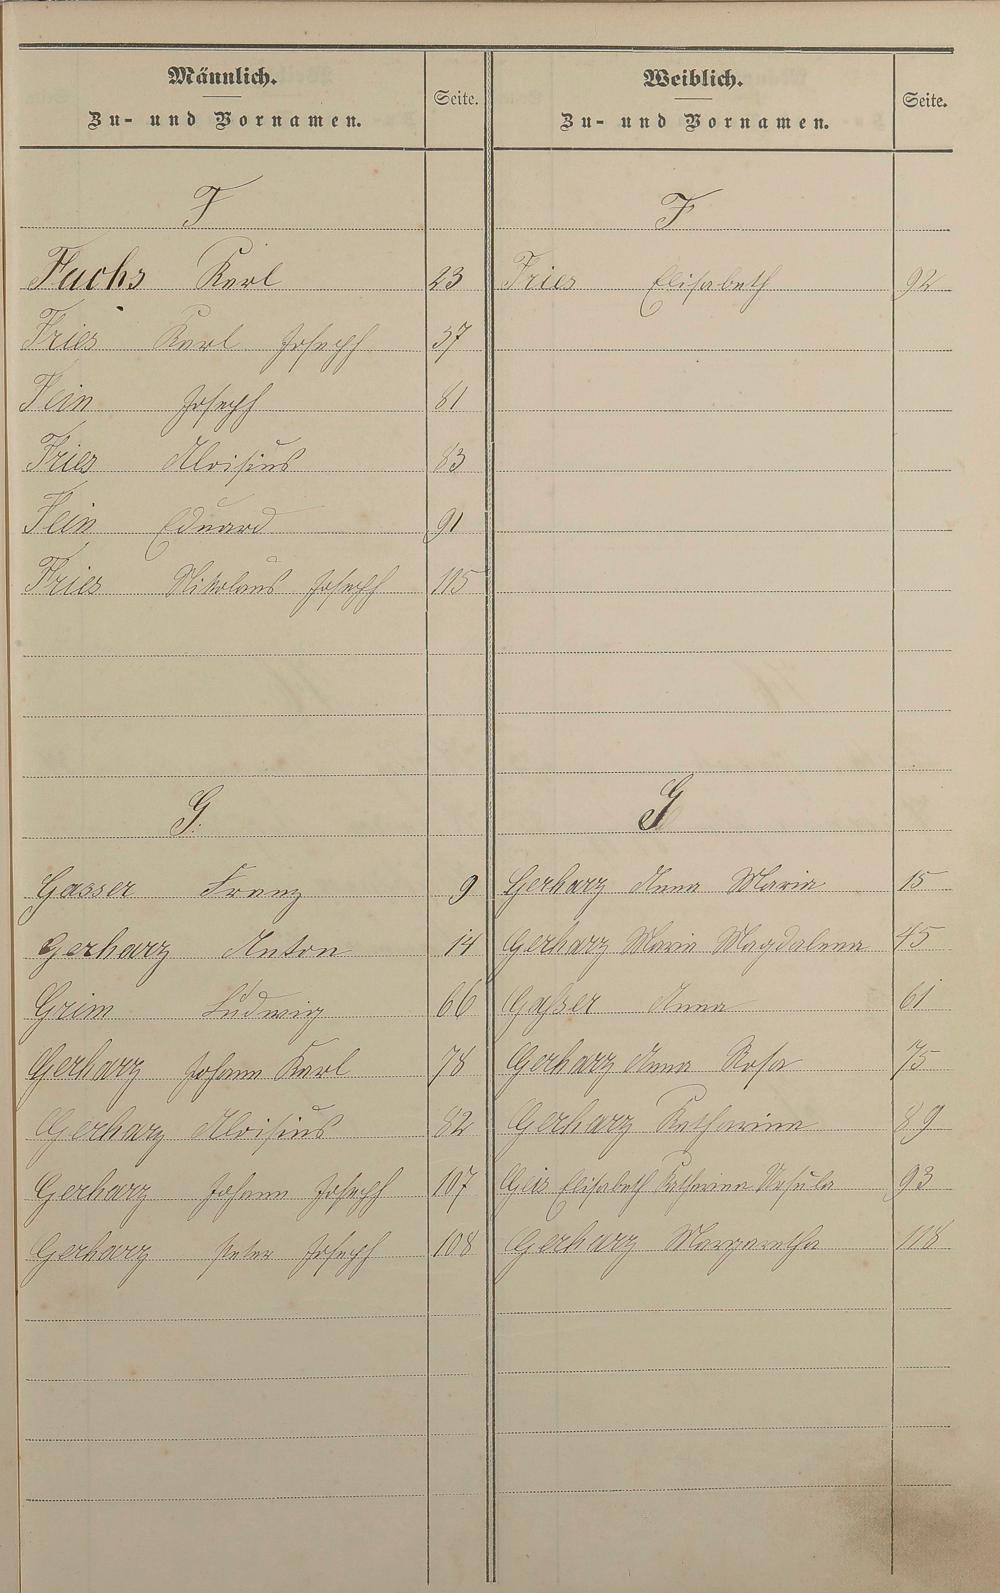 Männlich.
Zu- und Vornamen.
Seite.
F
Fuchs Karl 23
Fries Karl Joseph 37
Fein Joseph 81
Fries Aloisius 83
Fein Eduard 91
Fries Nikolaus Joseph 115
G.
Gasser Franz 9
Gerharz Anton 14
Grim Ludwig 66
Gerharz Johann Karl 78
Gerharz Aloisius 82
Gerharz Johann Joseph 107
Gerharz Peter Joseph 108
Weiblich.
Zu- und Vornamen.
Seite.
F
Fries Elisabeth 92
G
Gerharz Anna Maria 15
Gerharz Maria Magdalena 45
Gaßer Anna 61
Gerharz Anna Rosa 75
Gerharz Katharina 89
Geis Elisabeth Katharina Ursula 93
Gerharz Margaretha 118